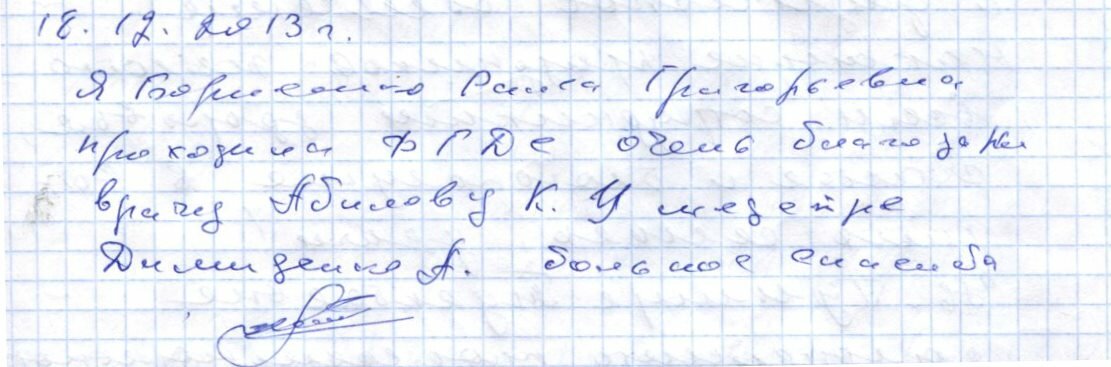 18.12.2013 г.
Я Борисенко Раиса Григорьевна
проходила ФГДС очень благодарна
врачу Абилову К. У медсестре
Димиденко А. большое спасибо